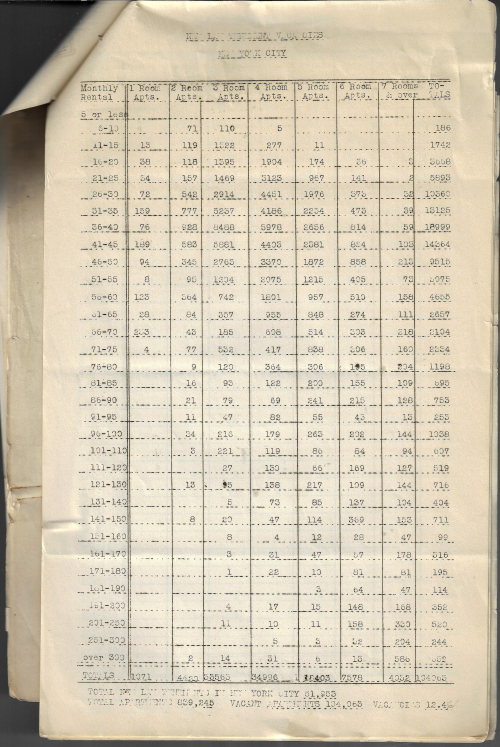 NEW YORK CITY
Monthly 1 Room 2 Room 3 Room 4 Room 5 Room 6 Room 7 Rooms TO-
Rental Apts. Apts. Apts. Apts. Apts. Apts. & over TALS
5 or less
71 110 5 186
11-15 13 119 1322 277 11 1742
16-20 38 118 1395 1904 174
21-25 34 157 1469 3123 967 141 2 5893
26-30 72 542 2914 4451 1976 373 32 10360
31-35 159 777 5237 4186 2234 473 59 13125
36-40 76 928 8488 5978 2656 814 59 18999
41-45 189 583 5881 4403 2381 824 103 14364
46-50 94 345 2763 3370 1872 858 213 9515
51-55 8 96 1204 2075 1215 405 72 5075
56-60 133 364 742 1801 957 510 158 4665
61-65 28 84 357 955 848 274 111 2657
66-70 233 43 185 608 514 303 218 2104
71-75 4 77 532 417 838 206 160 2234
76-80 9 120 364 306 195 204 1198
81-85 16 93 122 200 155 109 695
86-90 21 79 69 241 215 128 753
91-95 11 47 82 55 43 13 253
96-100 34 216 179 263 202 144 1038
101-110 3 221 119 86 84 94 607
111-120 27 130 66 169 127 519
121-130 13 95 138 217 109 144 716
131-140 5 73 85 137 104 404
141-150 8 20 47 114 369 153 711
151-160 8 4 12 28 47 99
161-170 3 31 47 57 178 316
171-180 1 22 10 81 81 195
181-190 3 64 47 114
191-200 4 17 15 148 168 352
201-250 11 10 11 158 330 520
251-300 5 3 32 204 244
over 300 2 14 31 6 13 586
TOTALS 4032 104063
TOTAL IN NEW YORK CITY
TOTAL APARTMENTS 839,245 VACANT APARTMENTS 104,063 VACANCIES 12.4%